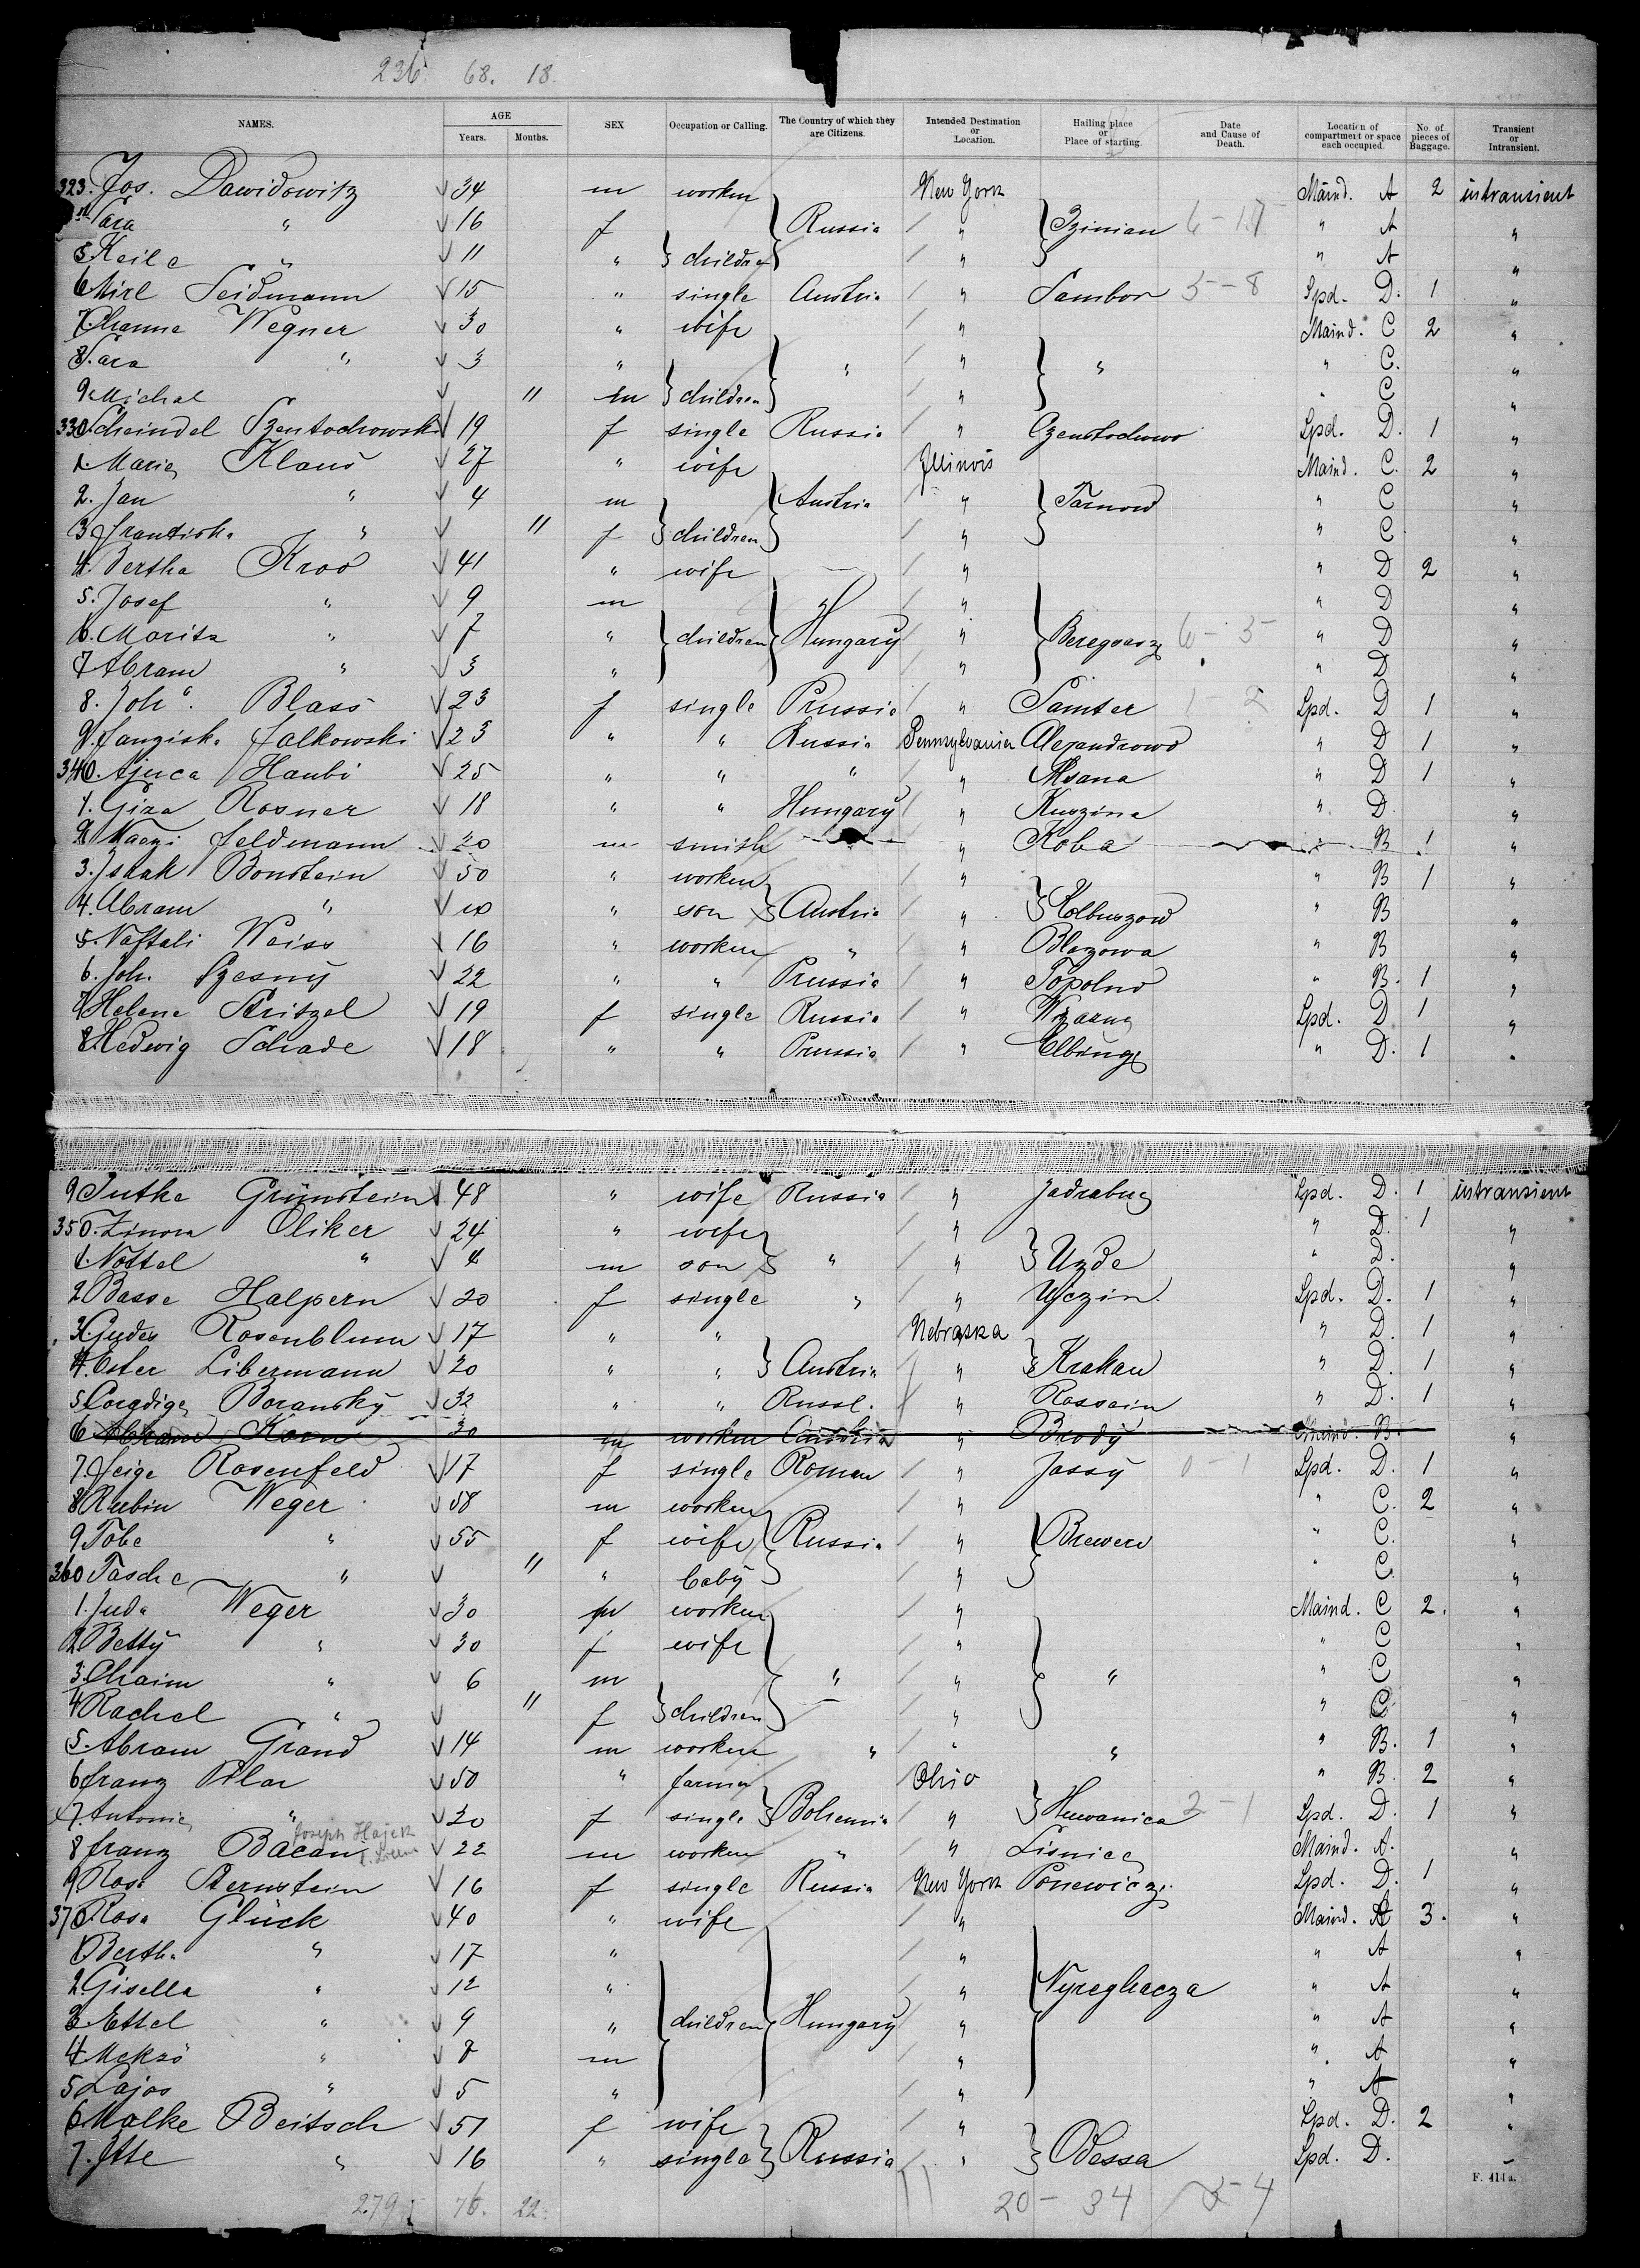 236. 68. 18.
NAMES. AGE Years. Months. SEX Occupation or Calling. The Country of which they are Citizens. Intended Destination or Location. Hailing place or Place of starting. Date and Cause of Death. Location of compartment or space each occupied. No. of pieces of Baggage. Transient or Intransient.
323. Jos. Dawidowitz 34 m worker New York Maind. A 2 intransient
Sara " 16 f Russia " 6-17 " A "
5 Keile " 11 " children " " A "
6 Mirl Seidmann 15 " single Austria " Sambor 5-8 Spd. D. 1 "
7 Channe Wegner 30 " wife " Maind. C 2 "
8. Sara " 3 " " " " " C. "
9 Michal 11 m children " " C "
330. Scheindel Szentochowski 19 f single Russia " Czenstochowo Spd. D. 1 "
1. Maria Klaus 27 " wife Illinois Maind. C. 2 "
2. Jan " 4 m Austria " Tarnow " C "
3 " 11 f children " " C "
4. Bertha Kroo 41 " wife " " D 2 "
5. Josef " 9 m " " " D "
6. Moritz " 7 " children Hungary " 6-5 " D "
7 Abram " 3 " " " D "
8. Joha. Blass 23 f single Prussia " Samter 1-2 Spd. D 1 "
9. Falkowski 23 " " Russia Pennsylvanien Alexandrowo " D 1 "
340. Haubi 25 " " " " " D 1 "
1. Giza Rosner 18 " " Hungary " " D. "
2 Feldmann 20 m smith " Koba " B 1 "
3. Isaak Bonstein 50 " worker " " B 1 "
4. Abram " " son Austria " Kolbuszow " B "
5. Naftali Weiss 16 " worker " " Blazowa " B "
6. Joh. Szesny 22 " " Prussia " Topolno " B. 1 "
7 Helene 19 f single Russia " Spd. D 1 "
8 Hedwig Schade 18 " " Prussia " Elbing " D. 1 "
9 Jutke Grünstein 48 " wife Russia " Spd. D. 1 intransient
350. Oliker 24 " wife " " D. 1 "
1. Nottel " 4 m son " " Uzde " D. "
2 Basse Halpern 20 f single " " Spd. D. 1 "
3 Rosenblum 17 " " Nebraska " D. 1 "
4. Ester Libermann 20 " " Austria " Krakau " D. 1 "
5 Boransky 32 " " Russl. " Rossein " D. 1 "
6 Abram Korn 30 m worker Austria " Brody Maind. B. "
7. Feige Rosenfeld 17 f single Roman " Jassy 0-1 Spd. D. 1 "
8 Rubin Weger 58 m worker " " C. 2 "
9 Tobe " 55 f wife Russia " " C. "
360 Tasche " 11 " baby " " C. "
1. Juda Weger 30 m worker " Maind. C 2. "
2 Betty " 30 f wife " " C "
3. Chaim " 6 m " " " " C "
4 Rachel " 11 f children " " C "
5. Abram Grand 14 m worker " " " " B. 1 "
6 Franz Pilar 50 " farmer Ohio " B. 2 "
7. Antonie " 20 f single Bohemia " 2-1 Spd. D. 1 "
Joseph Hajek
8 Franz Bacan 22 m worker " " Lisnice Maind. A. "
9 Rosa Bernstein 16 f single Russia New York Ponewicz Spd. D. 1 "
370 Rosa Glück 40 " wife " Maind. A 3. "
1 Bertha " 17 " " " A "
2. Gisella " 12 " " " A "
3 Ettel " 9 " children Hungary " " A "
4 " 7 m " " A "
5 Lajos " 5 " " " A "
6 Malke Beitsch 51 f wife " Spd. D. 2 "
7. Itte " 16 " single Russia " Odessa Spd. D. "
F. 414a.
279 76. 22. 20-34 3-4